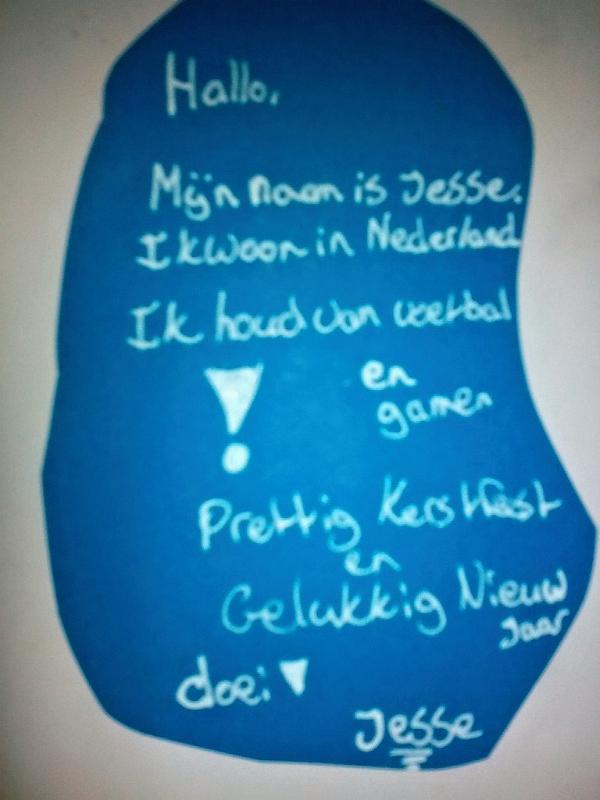 Hallo.
Mijn naam is Jesse.
Ik woon in Nederland
Ik houd van voetbal
! en
gamen
Prettig Kerstfeest
en
Gelukkig Nieuw
Jaar
doei
Jesse